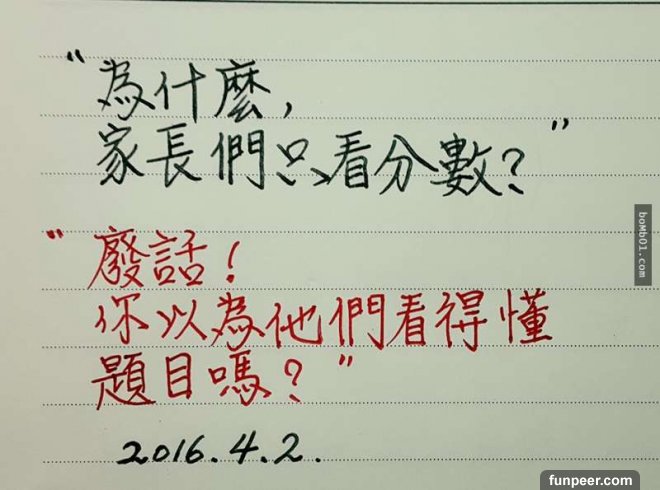 "為什麼,
家長們只看分數?"
"廢話!
你以為他們看得懂
題目嗎?"
2016.4.2.
boMb01.com
funpeer.com